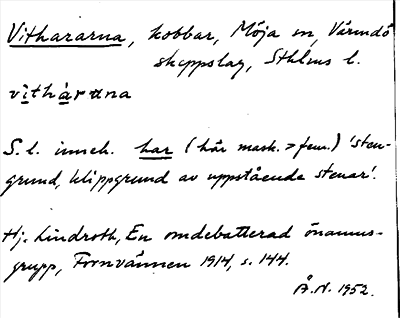 Vithararna, kobbar, Möja sn, Värmdö
skeppslag, Sthlms l.
vithàrana
S. l. inneh. har (här mask. > fem.) 'sten-
grund, klippgrund av uppstående stenar'.
Hj. Lindroth, En omdebatterad önamns-
grupp, Fornvännen 1914, s. 144.
Å.N. 1952.